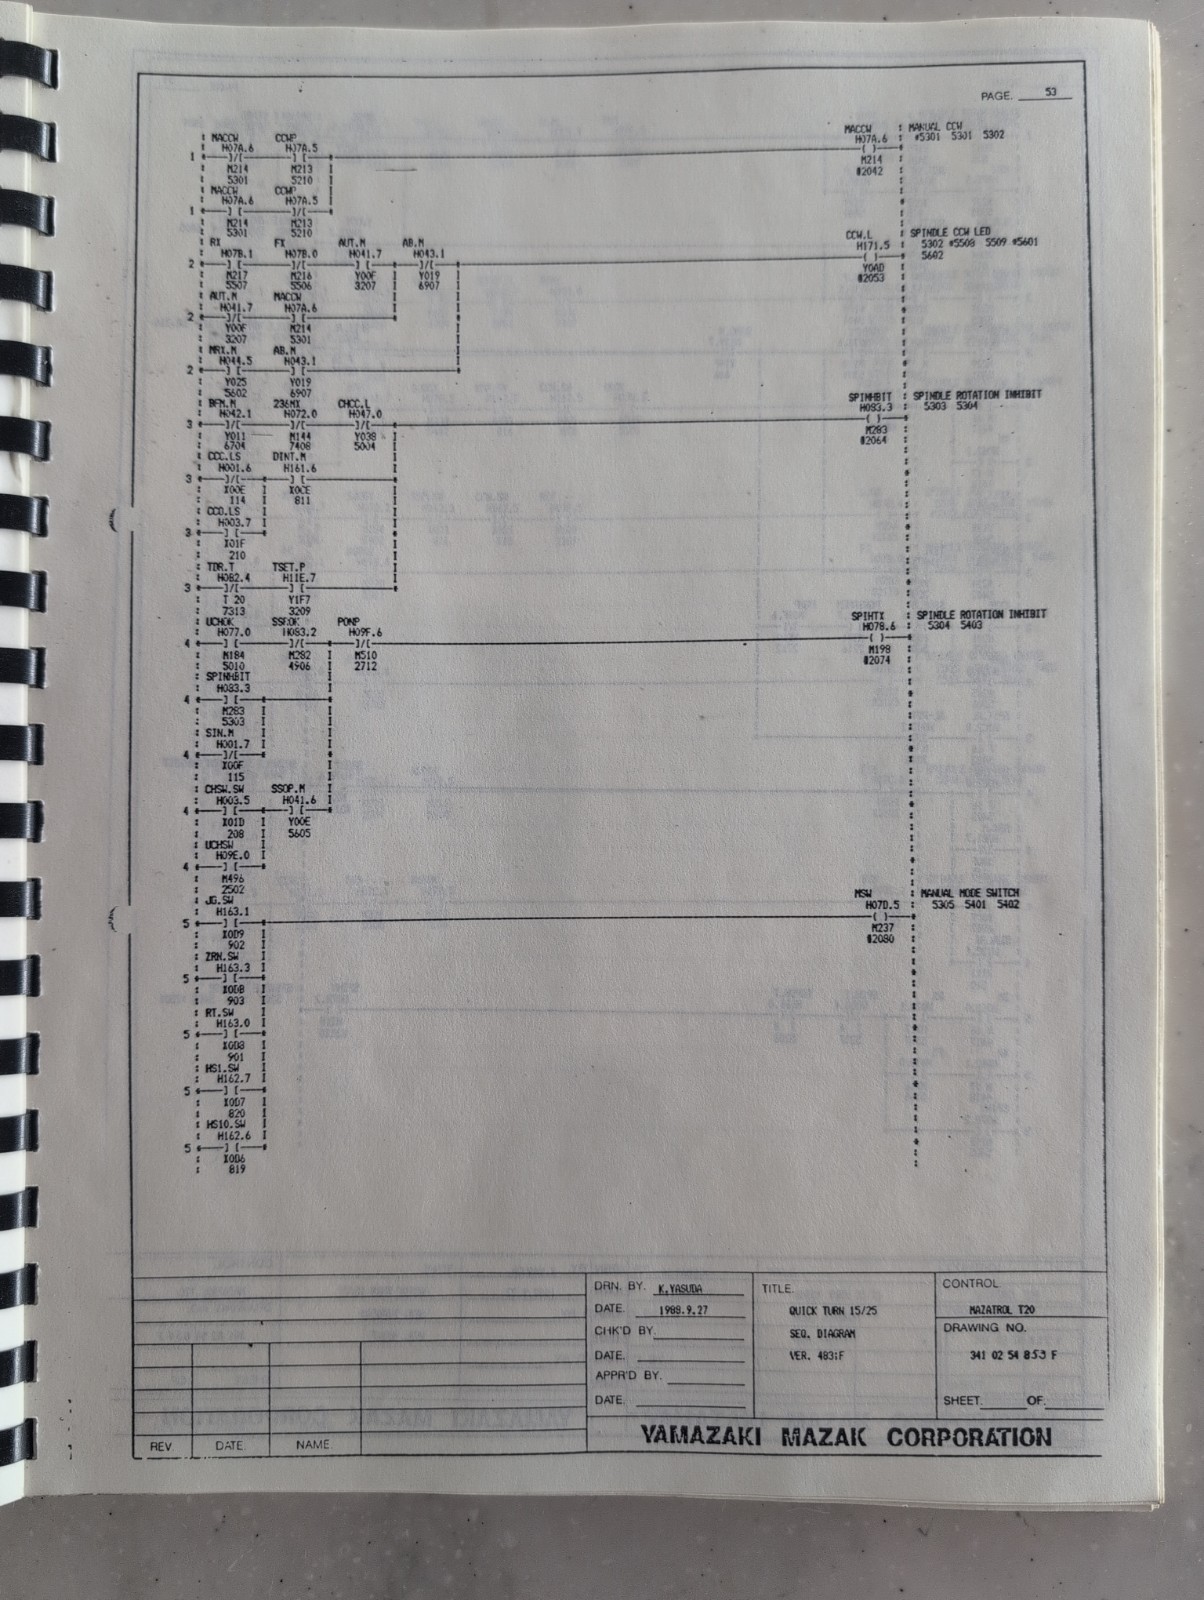 PAGE. 53
MACCW CCWP MACCW MANUAL CCW
H07A.6 H07A.5 H07A.6 #5301 5301 5302
1 ]/[ ] [ ( )
M214 M213 M214
5301 5210 #2042
MACCW CCWP
H07A.6 H07A.5
1 ] [ ]/[
M214 M213
5301 5210
RX FX AUT.M AB.M CCW.L SPINDLE CCW LED
H07B.1 H07B.0 H041.7 H043.1 H171.5 5302 #5508 5509 #5601
2 ] [ ]/[ ] [ ]/[ ( ) 5602
M217 M216 Y00F Y019 Y0AD
5507 5506 3207 6907 #2053
AUT.M MACCW
H041.7 H07A.6
2 ]/[ ] [
Y00F M214
3207 5301
MRX.M AB.M
H044.5 H043.1
2 ] [ ] [
Y025 Y019
5602 6907
BFM.M 236MX CHCC.L SPINHBIT SPINDLE ROTATION INHIBIT
H042.1 H072.0 H047.0 H083.3 5303 5304
3 ]/[ ]/[ ]/[ ( )
Y011 M144 Y038 M283
6704 7408 5004 #2064
CCC.LS DINT.M
H001.6 H161.6
3 ]/[ ] [
X00E X0CE
114 811
CCO.LS
H003.7
3 ] [
X01F
210
TDR.T TSET.P
H0B2.4 H11E.7
3 ]/[ ] [
T 20 Y1F7
7313 3209
UCHOK SSFOK PONP SPIHTX SPINDLE ROTATION INHIBIT
H077.0 H083.2 H09F.6 H078.6 5304 5403
4 ] [ ]/[ ]/[ ( )
M184 M282 M510 M198
5010 4906 2712 #2074
SPINHBIT
H083.3
4 ] [
M283
5303
SIN.M
H001.7
4 ]/[
X00F
115
CHSW.SW SSOP.M
H003.5 H041.6
4 ] [ ] [
X01D Y00E
208 5605
UCHSW
H09E.0
4 ] [
M496
2502
JG.SW MSW MANUAL MODE SWITCH
H163.1 H07D.5 5305 5401 5402
5 ] [ ( )
X0D9 M237
902 #2080
ZRN.SW
H163.3
5 ] [
X0DB
903
RT.SW
H163.0
5 ] [
X0D8
901
HS1.SW
H162.7
5 ] [
X0D7
820
HS10.SW
H162.6
5 ] [
X0D6
819
DRN. BY. K.YASUDA
DATE. 1988.9.27
CHK'D BY.
DATE.
APPR'D BY.
DATE.
TITLE.
QUICK TURN 15/25
SEQ. DIAGRAM
VER. 483:F
CONTROL
MAZATROL T20
DRAWING NO.
341 02 54 853 F
SHEET. OF.
REV. DATE. NAME.
YAMAZAKI MAZAK CORPORATION